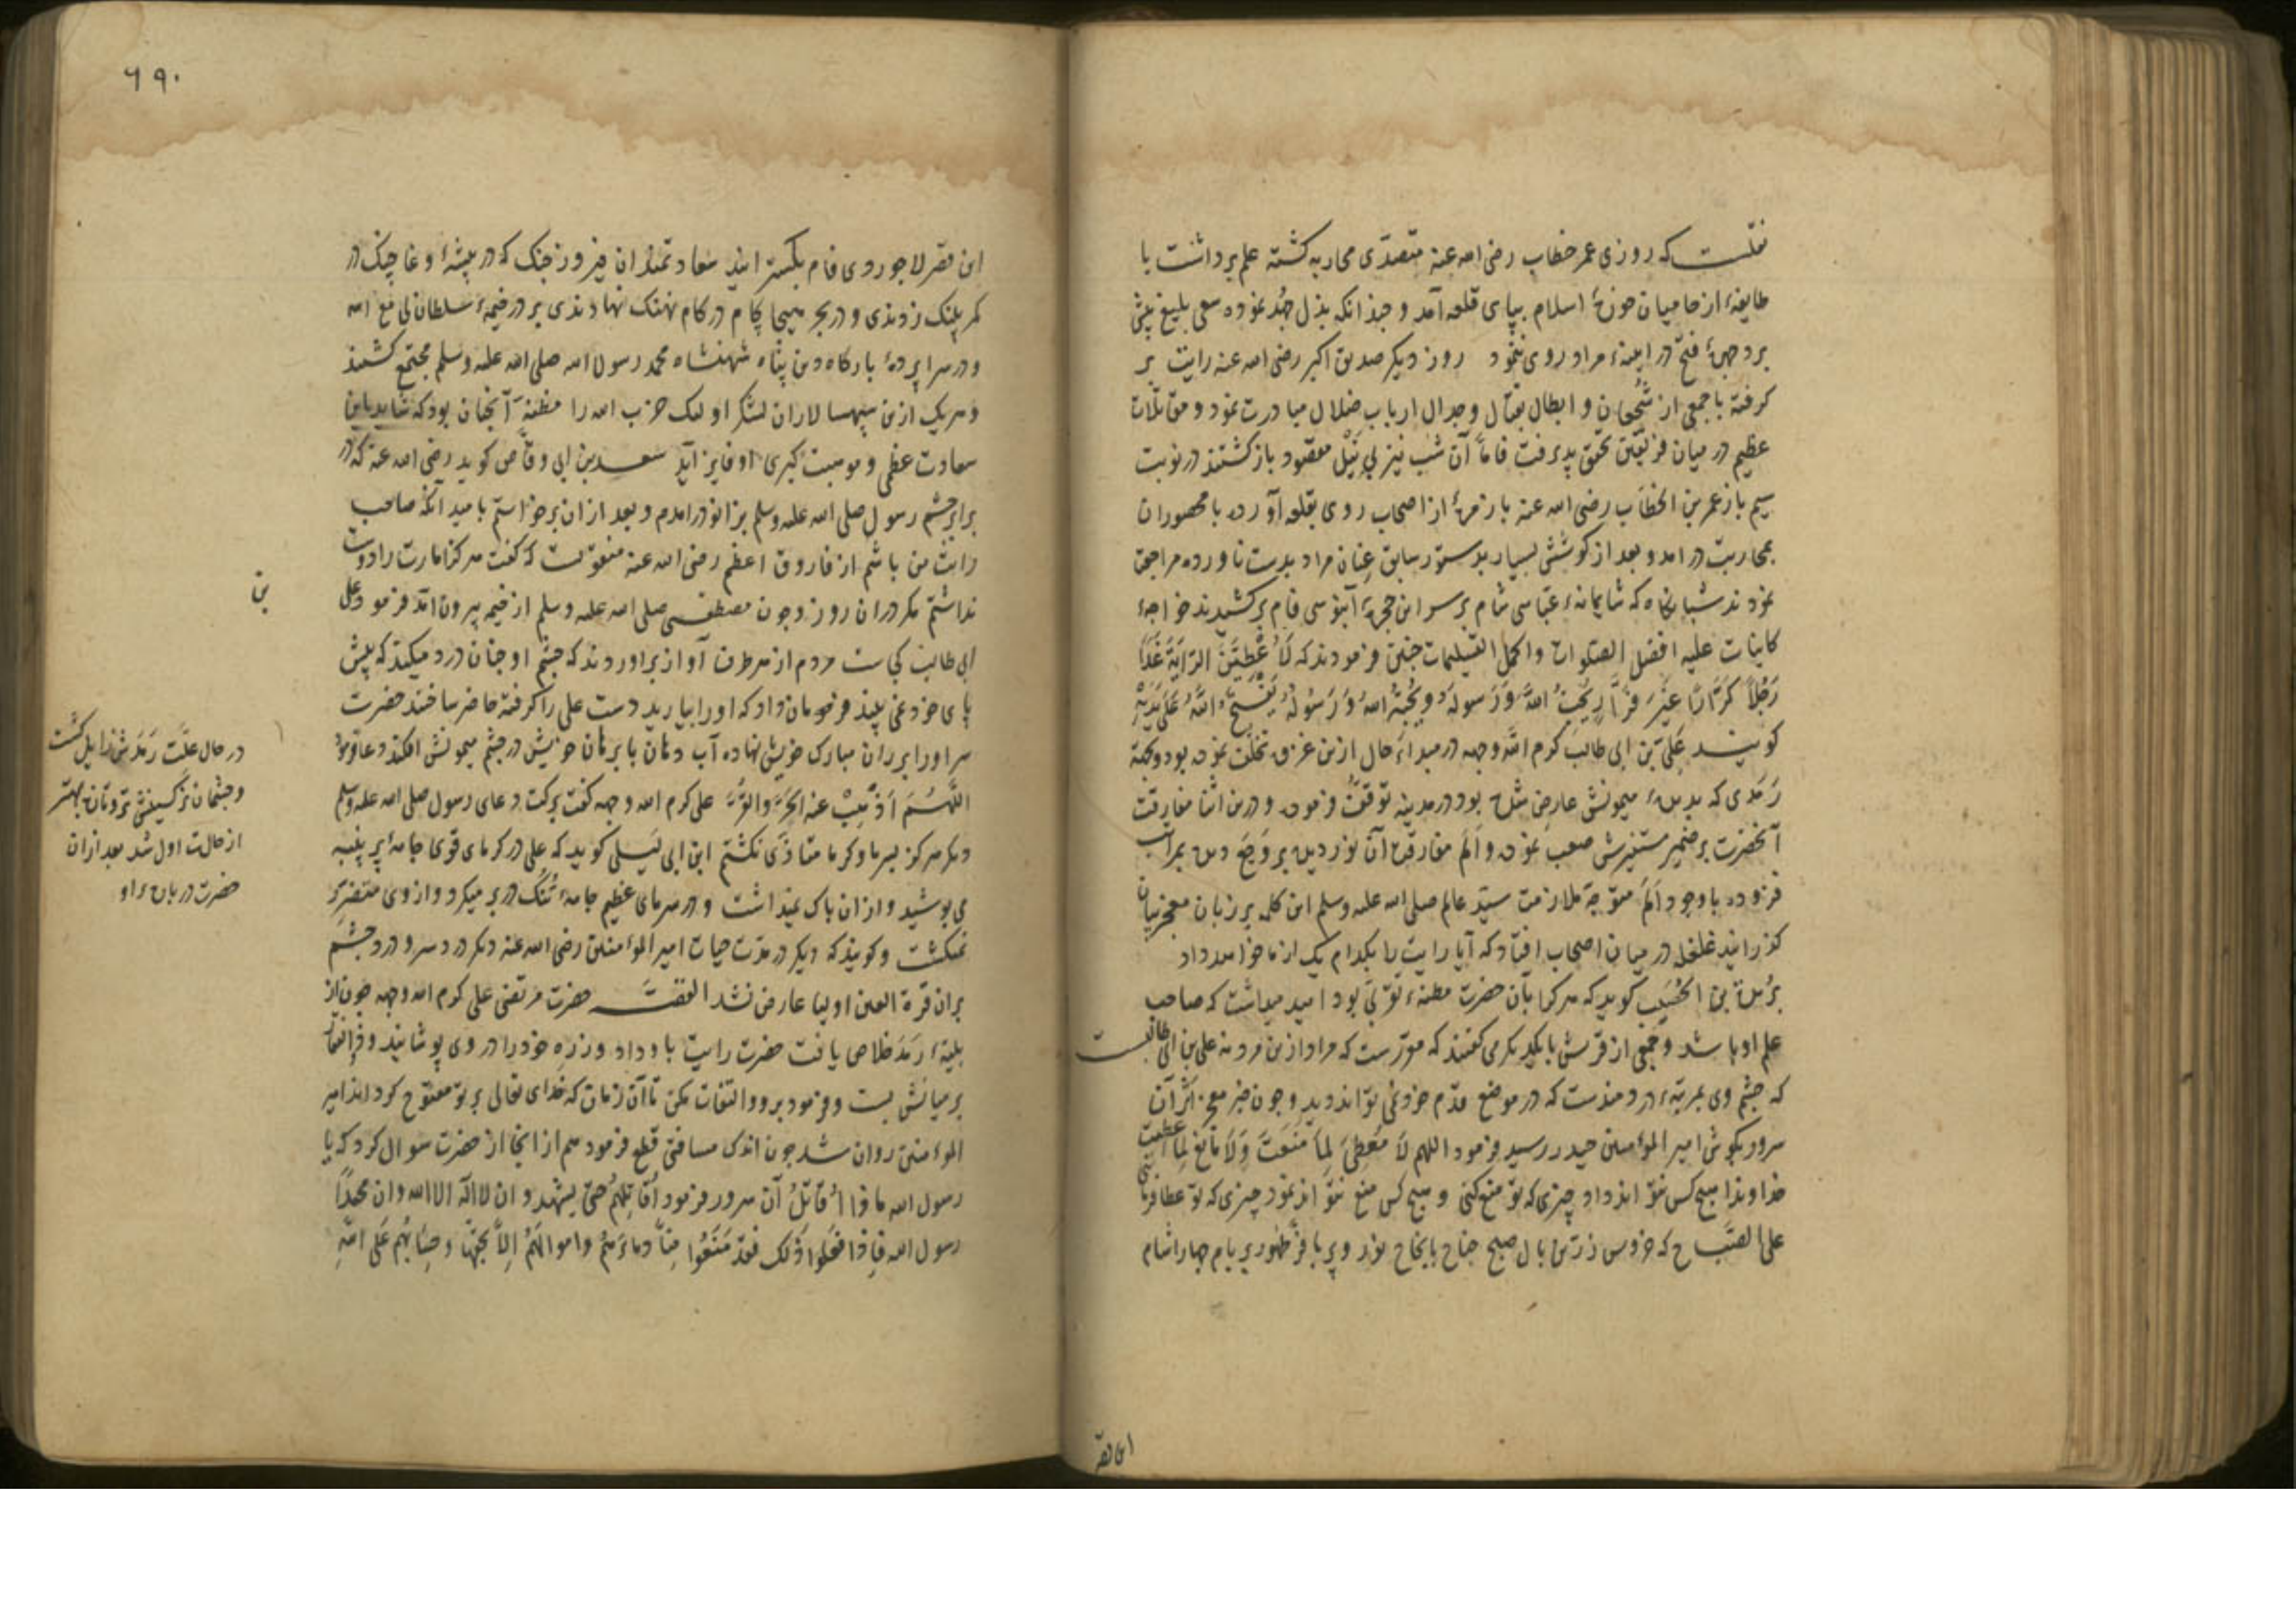 نقلست که روزی عمر خطاب رضی الله عنه متصدّی محاربه کشته علم برداشت با
طایفهٔ از حامیان حوزهٔ اسلام بپای قلعه آمد و چندانکه بذل جُهد نموده سعی بلیغ پیش
برد چهرهٔ فتح در آینهٔ مراد روی ننمود روز دیکر صدیق اکبر رضی الله عنه رایت بر
کرفته با جمعی از شُجعان و ابطال بقتال و جدال ارباب ضلال مبادرت نمود و مقاتلات
عظیم در میان فریقین تحقق پذیرفت فامّا آن شب نیز بی نَیْل مقصود بازکشتند در نوبت
سیم باز عمر بن الخطّاب رضی الله عنه با زمرهٔ از اصحاب روی بقلعه آورده با محصوران
بمحاربت درامد و بعد از کوشش بسیار بدستور سابق عنان مراد بدست ناورده مراجعت
نمودند شبانکاه که شایمانهٔ عبّاسی شام بر سر این حجرهٔ آبنوسی فام برکشیدند خواجهٔ
کاینات علیه افضل الصلوات واکمل التسلیمات چنین فرمودند که لَاُعْطِیَنَّ الرّایَةَ غَدًا
رَجُلاً کَرّارًا غَیْرَ فَرّارٍ یُحِبُّ اللهَ وَرَسولَهُ ویُحِبُّهُ اللهُ وَرَسُولُهُ یَفْتَحُ اللهُ عَلَی یَدَیْهِ
کویند عَلِیّ بن ابی طالب کرم الله وجهه در مبداء حال ازین غزوه تخلّف نموده بود و بجهة
رَمَدی که بدیدهٔ میمونش عارض شده بود در مدینه توقّف فرموده و درین اثنا مفارقت
آنحضرت بر ضمیر مستنیرش صعب نموده و اَلَم مفارقت آن نور دیده بر وَجَع دیده بمراتب
فزوده با وجود اَلَم متوجّه ملازمت سیّد عالم صلی الله علیه وسلم این کلمه بر زبان معجزبیان
کذرانید غلغله در میان اصحاب افتاد که آیا رایت را بکدام یک از ما خواهد داد
بُرَیدة بن الحُصَیب کوید که هر کرا بآن حضرت مظنهٔ تقرّبی بود امید میداشت که صاحب
علم او باشد و جمعی از قریش با یکدیکر می کفتند که مقرّرست که مراد ازین مرد نه علی بن ابی طالبست
که چشم وی بمرتبهٔ دردمندست که در موضع قدم خود نمی تواند دید و چون خبر معجز اثر آن
سرور بکوش امیر المؤمنین حیدر رسید فرمود اللهم لَا مُعطِیَ لِمَا مَنَعتَ وَلَا مَانِعَ لِمَا اَعطَیتَ
خداوندا هیچ کس نتواند داد چیزی که تو منع کنی و هیچ کس منع نتواند نمود چیزی که تو عطا فرمایی
علی الصّباح که خروس زرّین بال صبح جناح بانجاح نور و پر با فرّ ظهور بر بام چهار اشام
این قصر
٦٩٠
این قصر لاجوردی فام بکسترانید سعادتمندان فیروز جنک که در بیشهٔ وغا چنک در
کمر پلنک زدندی و در بحر هیجا بکام در کام نهنک نهادندی بر در خیمهٔ سلطان لی مع الله
و در سراپردهٔ بارکاه دین پناه شهنشاه محمد رسول الله صلی الله علیه وسلم مجتمع کشتند
و هر یک ازین سپهسالاران لشکر اولئک حزب الله را مظنهٔ آنچنان بود که شاید باین
سعادت عظمی و موهبت کبری او فایز آید سعد بن ابی وقّاص کوید رضی الله عنه که در
برابر چشم رسول صلی الله علیه وسلم بزانو درامدم و بعد ازان برخواستم بامید آنکه صاحب
رایت من باشم از فاروق اعظم رضی الله عنه منقولست که کفت هرکز امارت را دوست
نداشتم مکر دران روز و چون مصطفی صلی الله علیه وسلم از خیمه بیرون آمد فرمود علی
بن
ابی طالب کجاست مردم از هر طرف آواز براوردند که چشم او چنان درد میکند که پیش
پای خود نمی بیند فرمان داد که او را بیارید دست علی را کرفته حاضر ساختند حضرت
سر او را بر ران مبارک خویش نهاده آب دهان با برهان خویش در چشم میمونش افکند و دعا فرمود
اللّهُمَّ اَذْهِبْ عنه الحَرَّ والقُرَّ علی کرم الله وجهه کفت ببرکت دعای رسول صلی الله علیه وسلم
دیکر هرکز بسرما و کرما متاذّی نکشتم ابن ابی لیلی کوید که علی در کرمای قوی جامهٔ پر پنبه
می پوشید و ازان باک نمیداشت و در سرمای عظیم جامهٔ تُنُک در بر میکرد و از وی متضرّر
نمیکشت و کویند که دیکر در مدّت حیات امیر المؤمنین رضی الله عنه دیکر درد سر و درد چشم
بران قرة العین اولیا عارض نشد القصّه حضرت مرتضی علی کرم الله وجهه چون از
بلیّهٔ رَمَد خلاص یافت حضرت رایت باو داد و زره خود را در وی پوشانید و ذوالفقار
بر میانش بست و فرمود برو و التفات مکن تا آن زمان که خدای تعالی بر تو مفتوح کرداند امیر
المؤمنین روان شد چون اندک مسافتی قطع فرمود هم از انجا از حضرت سوال کرد که یا
رسول الله ماذا اُقاتِلُ آن سرور فرمود اُقاتِلهُم حتّی یشهدوا ان لا اله الا الله وان محمدًا
رسول الله فاِذا فعَلوا ذٰلک فقد مَنَعُوا مِنّا دماءَهُم واموالَهُم اِلّا بحَقّها وحِسابُهُم عَلَی اللهِ
در حال علّت رَمَدش زایل کشت
و چشمان نرکسینش تروتازه بهتر
از حالت اول شد بعد ازان
حضرت در بارهٔ او